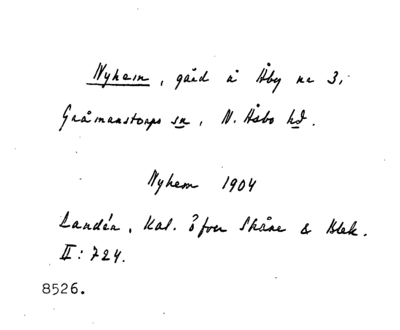 Nyhem, gård å Åby nr 3,
Gråmanstorps sn, N. Åsbo hd.
Nyhem 1904
Landén, Kal. öfver Skåne & Blek.
II: 724.
8526.